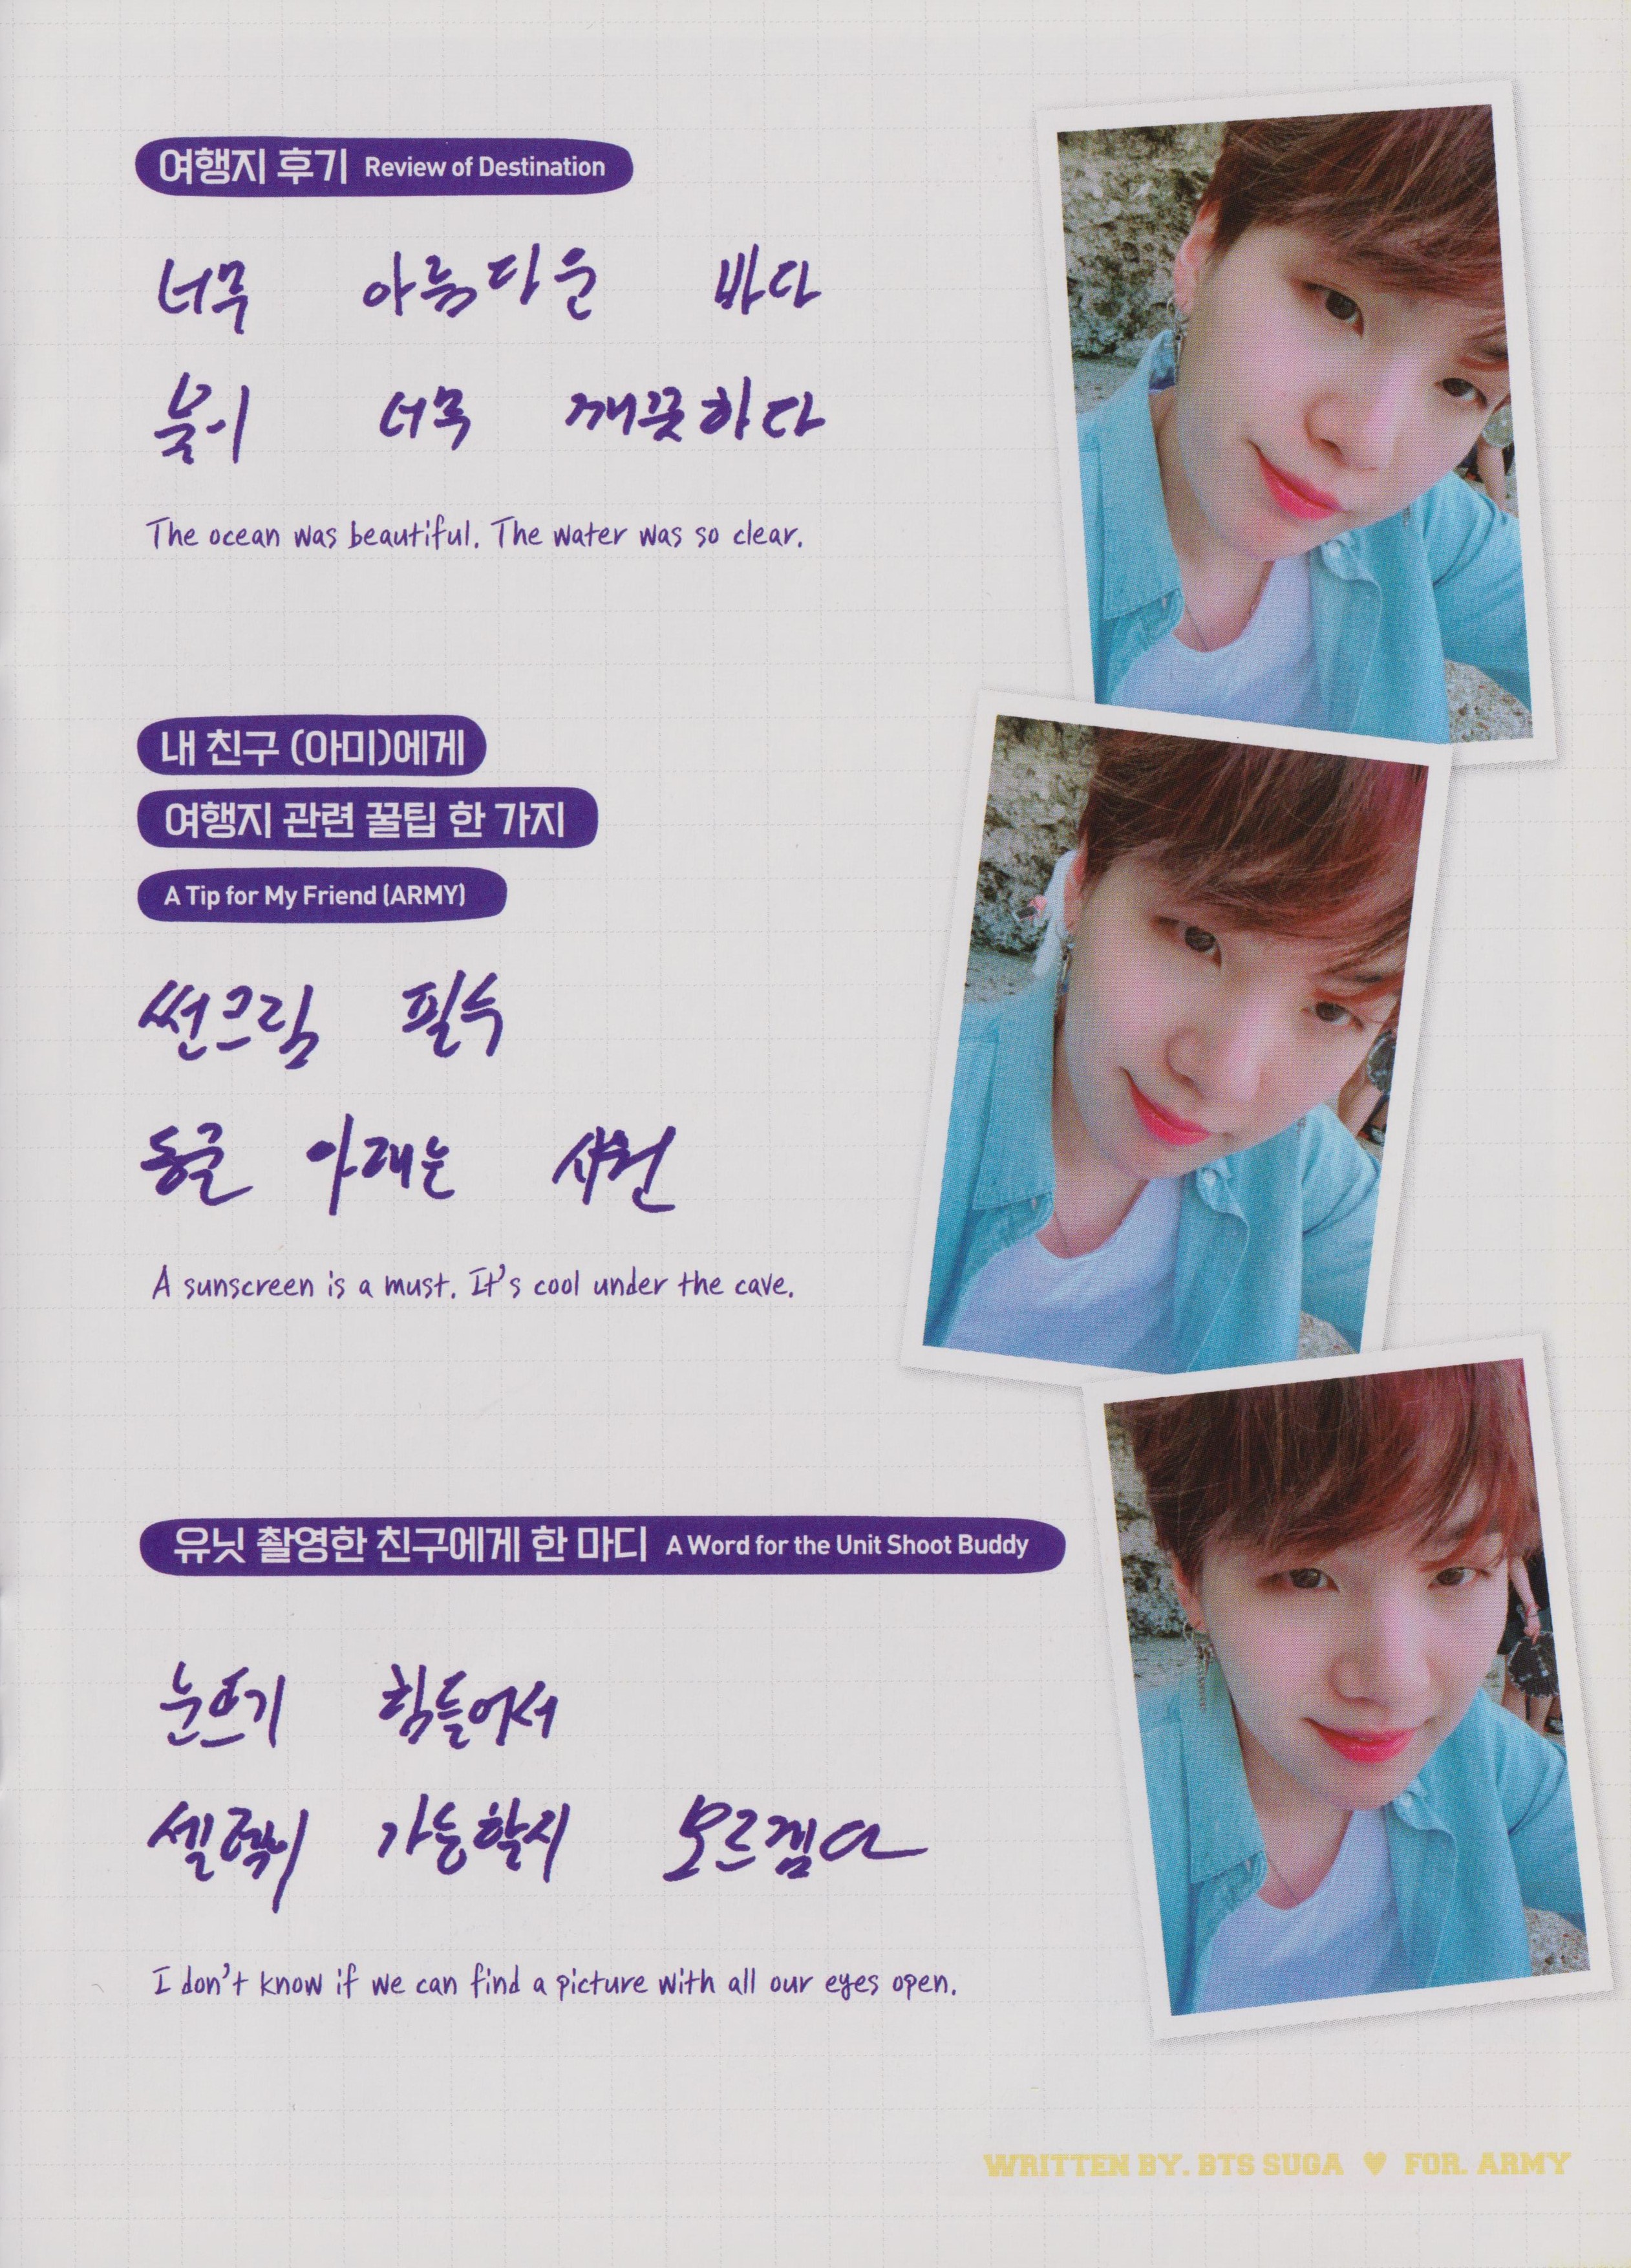 여행지 후기 Review of Destination
너무 아름다운 바다
물이 너무 깨끗하다
The ocean was beautiful. The water was so clear.
내 친구 (아미)에게
여행지 관련 꿀팁 한 가지
A Tip for My Friend (ARMY)
썬크림 필수
동굴 아래는 시원
A sunscreen is a must. It's cool under the cave.
유닛 촬영한 친구에게 한 마디 A Word for the Unit Shoot Buddy
눈뜨기 힘들어서
셀렉이 가능할지 모르겠다
I don't know if we can find a picture with all our eyes open.
WRITTEN BY. BTS SUGA ♥ FOR. ARMY